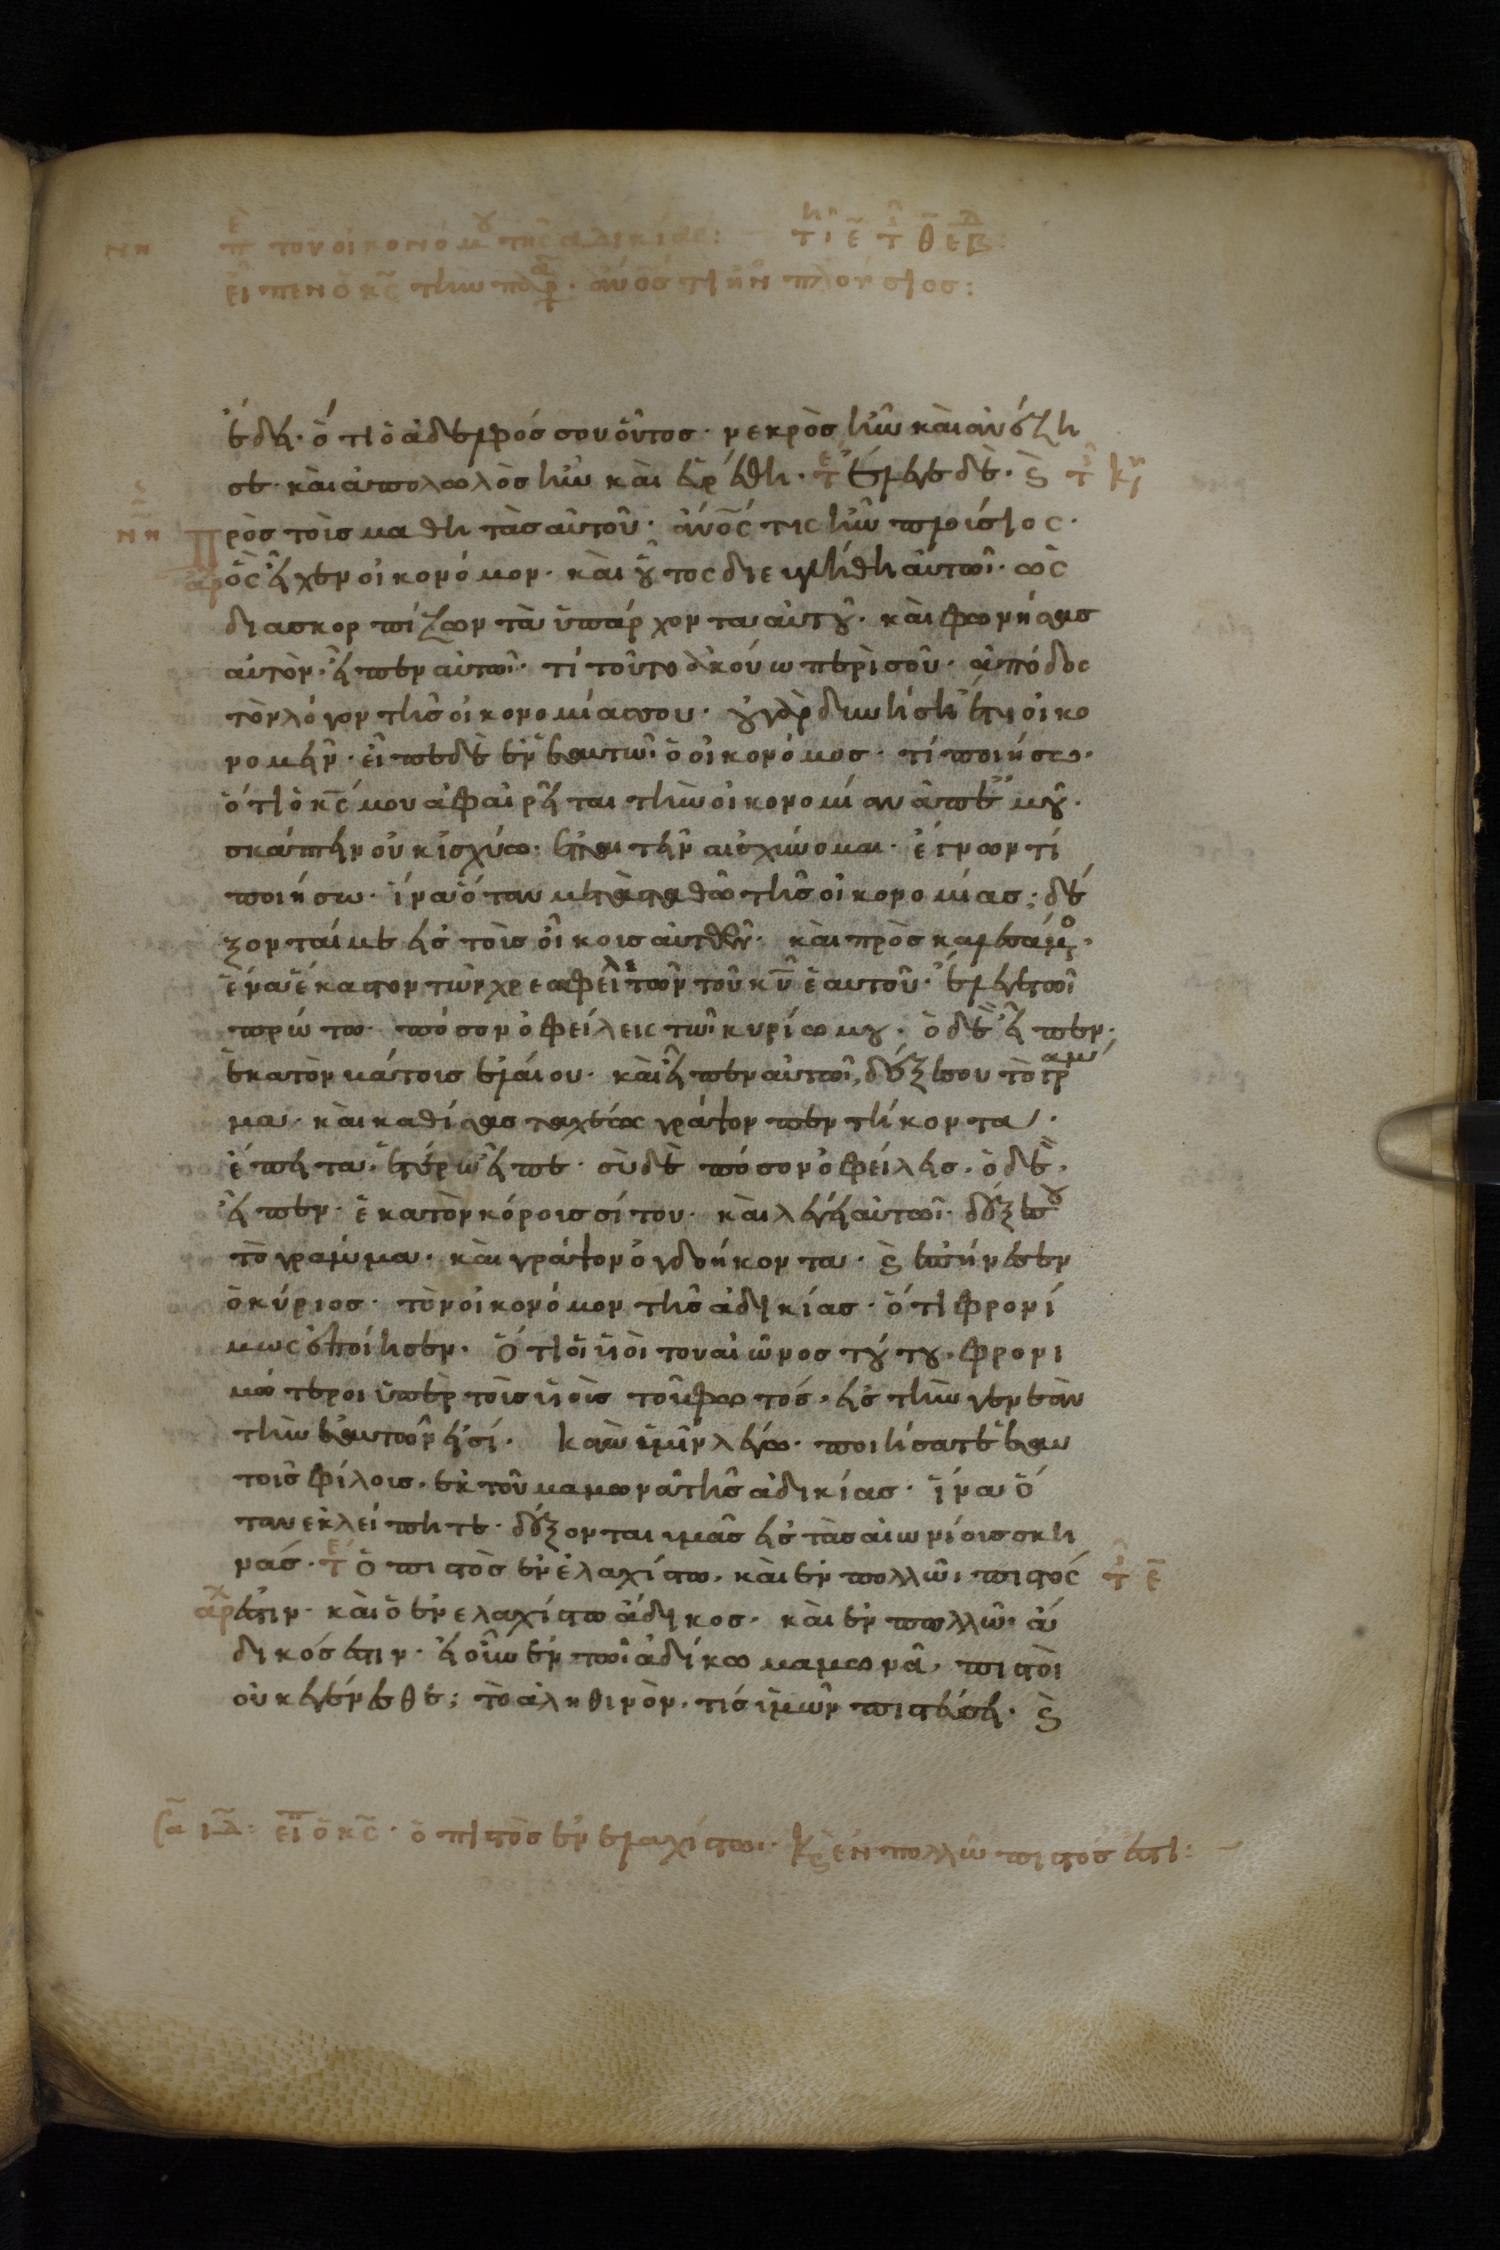 νη π τοῦ οἰκονόμου τῆς ἀδικίας: τῆ ε τ θ εβ:
εἶπεν ὁ κς τὴν παρ. ἀνος τὶ ἦν πλούσιος:
ἔδει· ὅτι ὁ ἀδελφός σου οὗτος· νεκρὸς ἦν καὶ ἀνέζη
σε· καὶ ἀπολωλὸς ἦν καὶ εὑρέθη· τε ἔλεγε δὲ· ϗ τ κυ
νη πρὸς τοὺς μαθητὰς αὐτοῦ· ἀνος τις ἦν πλούσιος·
αρ ὃς εἶχεν οἰκονόμον· καὶ οὗτος διεβλήθη αὐτῶ· ὡς
διασκορπίζων τὰ ὑπάρχοντα αὐτοῦ· καὶ φωνήσας
αὐτὸν· εἶπεν αὐτῶ· τί τοῦτο ἀκούω περὶ σοῦ· ἀπόδος
τὸν λόγον τῆς οἰκονομίας σου· οὐ γὰρ δυνήση ἔτι οἰκο
νομεῖν· εἶπε δὲ ἐν ἑαυτῶ ὁ οἰκονόμος· τί ποιήσω·
ὅτι ὁ κς μου ἀφαιρεῖται τὴν οἰκονομίαν ἀπ' ἐμοῦ·
σκάπτειν οὐκ ἰσχύω· ἐπαιτεῖν αἰσχύνομαι· ἔγνων τί
ποιήσω· ἵνα ὅταν μετασταθῶ τῆς οἰκονομίας· δέ
ξονταί με εἰς τοὺς οἴκους αὐτῶν· καὶ προσκαλεσάμος
ἕνα ἕκαστον τῶν χρεωφειλετῶν τοῦ κυ ἑαυτοῦ· ἔλεγε τῶ
πρώτω· πόσον ὀφείλεις τῶ κυρίω μου· ὁ δὲ εἶπεν·
ἑκατὸν βάτους ἐλαίου· καὶ εἶπεν αὐτῶ, δέξαι σου τὸ γράμ
μα· καὶ καθίσας ταχέως γράψον πεντήκοντα·
ἔπειτα ἑτέρω εἶπε· σὺ δὲ πόσον ὀφείλεις· ὁ δὲ·
εἶπεν· ἑκατὸν κόρους σίτου· καὶ λέγει αὐτῶ· δέξαι σου
τὸ γράμμα· καὶ γράψον ὀγδοήκοντα· ϗ ἐπήνεσεν
ὁ κύριος· τὸν οἰκονόμον τῆς ἀδικίας· ὅτι φρονί
μως ἐποίησεν· ὅτι οἱ υἱοὶ του αἰῶνος τούτου· φρονι
μώτεροι ὑπὲρ τοὺς υἱοὺς τοῦ φωτός· εἰς τὴν γενεὰν
τὴν ἑαυτῶν εἰσί· καγὼ ὑμῖν λέγω· ποιήσατε ἑαυ
τοῖς φίλους· ἐκ τοῦ μαμωνᾶ τῆς ἀδικίας· ἵνα ὅ
ταν ἐκλείπητε· δέξονται υμᾶς εἰς τὰς αἰωνίους σκη
νάς· τε ὁ πιστὸς ἐν ἐλαχίστω, καὶ ἐν πολλῶ, πιστός τ ε
αρχ ἐστιν· καὶ ὁ ἐν ελαχίστω ἄδικος· καὶ ἐν πολλῶ ἄ
δικός ἐστιν· εἰ οὖν ἐν τῶ ἀδίκω μαμωνᾶ, πιστοὶ
οὐκ ἐγένεσθε; τὸ ἀληθινὸν· τίς ὑμῶν πιστεύσει· ϗ
σα ιδ: εἶπ ὁ κς· ὁ πιστὸς ἐν ἐλαχίστωι· κϗ ἐν πολλῶ πιστός ἐστι: